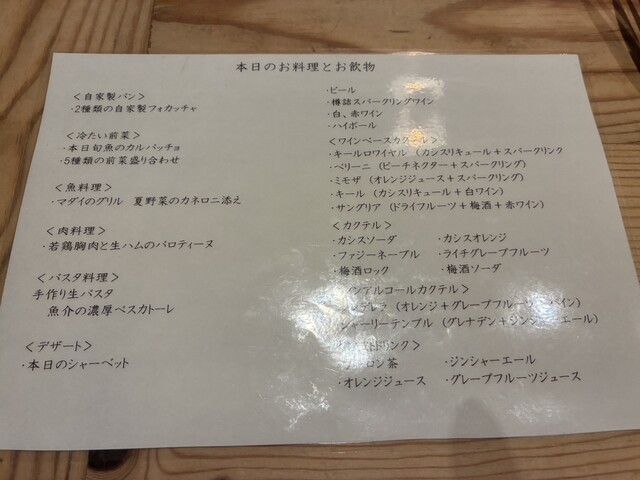 本日のお料理とお飲物
＜自家製パン＞
・2種類の自家製フォカッチャ
＜冷たい前菜＞
・本日旬魚のカルパッチョ
・5種類の前菜盛り合わせ
＜魚料理＞
・マダイのグリル　夏野菜のカネロニ添え
＜肉料理＞
・若鶏胸肉と生ハムのバロティーヌ
＜パスタ料理＞
手作り生パスタ
魚介の濃厚ペスカトーレ
＜デザート＞
・本日のシャーベット
・ビール
・樽詰スパークリングワイン
・白、赤ワイン
・ハイボール
＜ワインベースカクテル＞
・キールロワイヤル（カシスリキュール＋スパークリンク
・ベリーニ（ピーチネクター＋スパークリング）
・ミモザ（オレンジジュース＋スパークリング）
・キール（カシスリキュール＋白ワイン）
・サングリア（ドライフルーツ＋梅酒＋赤ワイン）
＜カクテル＞
・カシスソーダ　・カシスオレンジ
・ファジーネーブル　・ライチグレープフルーツ
・梅酒ロック　・梅酒ソーダ
ンアルコールカクテル＞
（オレンジ＋グレープフルーツ　イン）
シャーリーテンプル（グレナデン＋ジンジャーエール）
ドリンク＞
ロン茶　・ジンシャーエール
・オレンジジュース　・グレープフルーツジュース